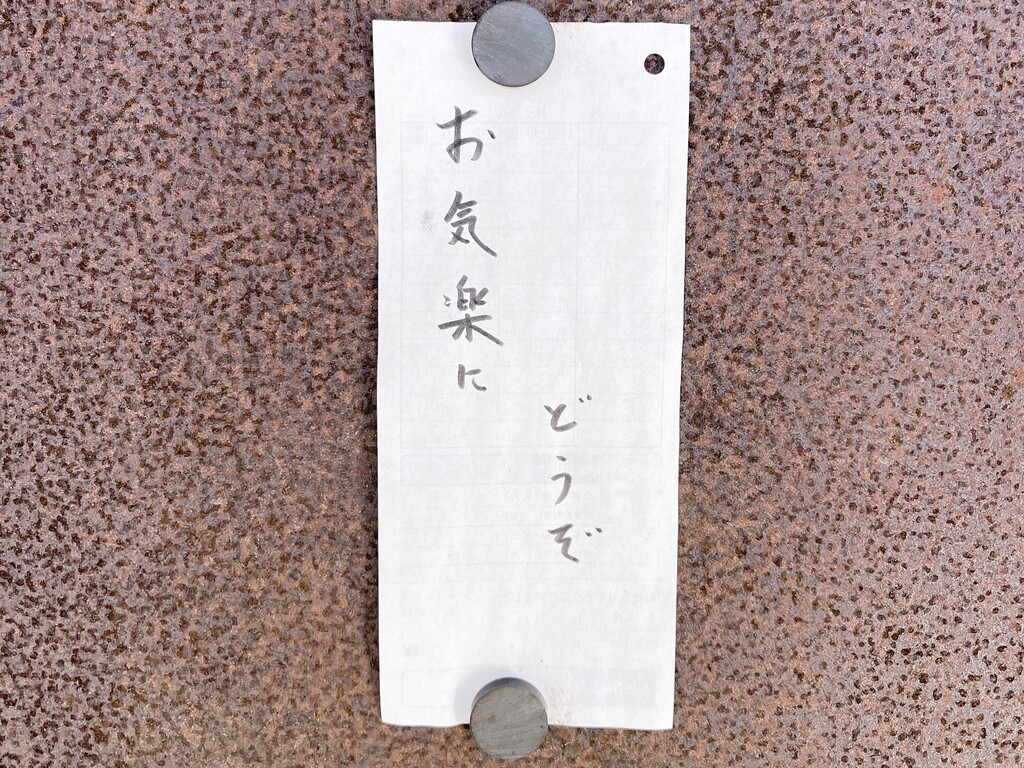 お気楽に
どうぞ